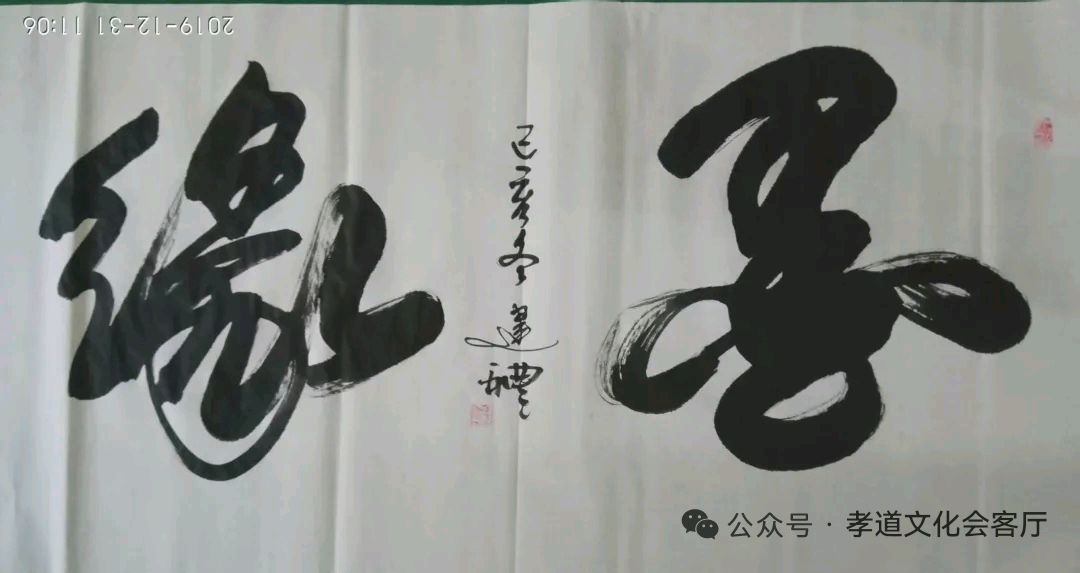 善
缘
己亥冬建礼
2019-12-31 11:06
公众号 · 孝道文化会客厅